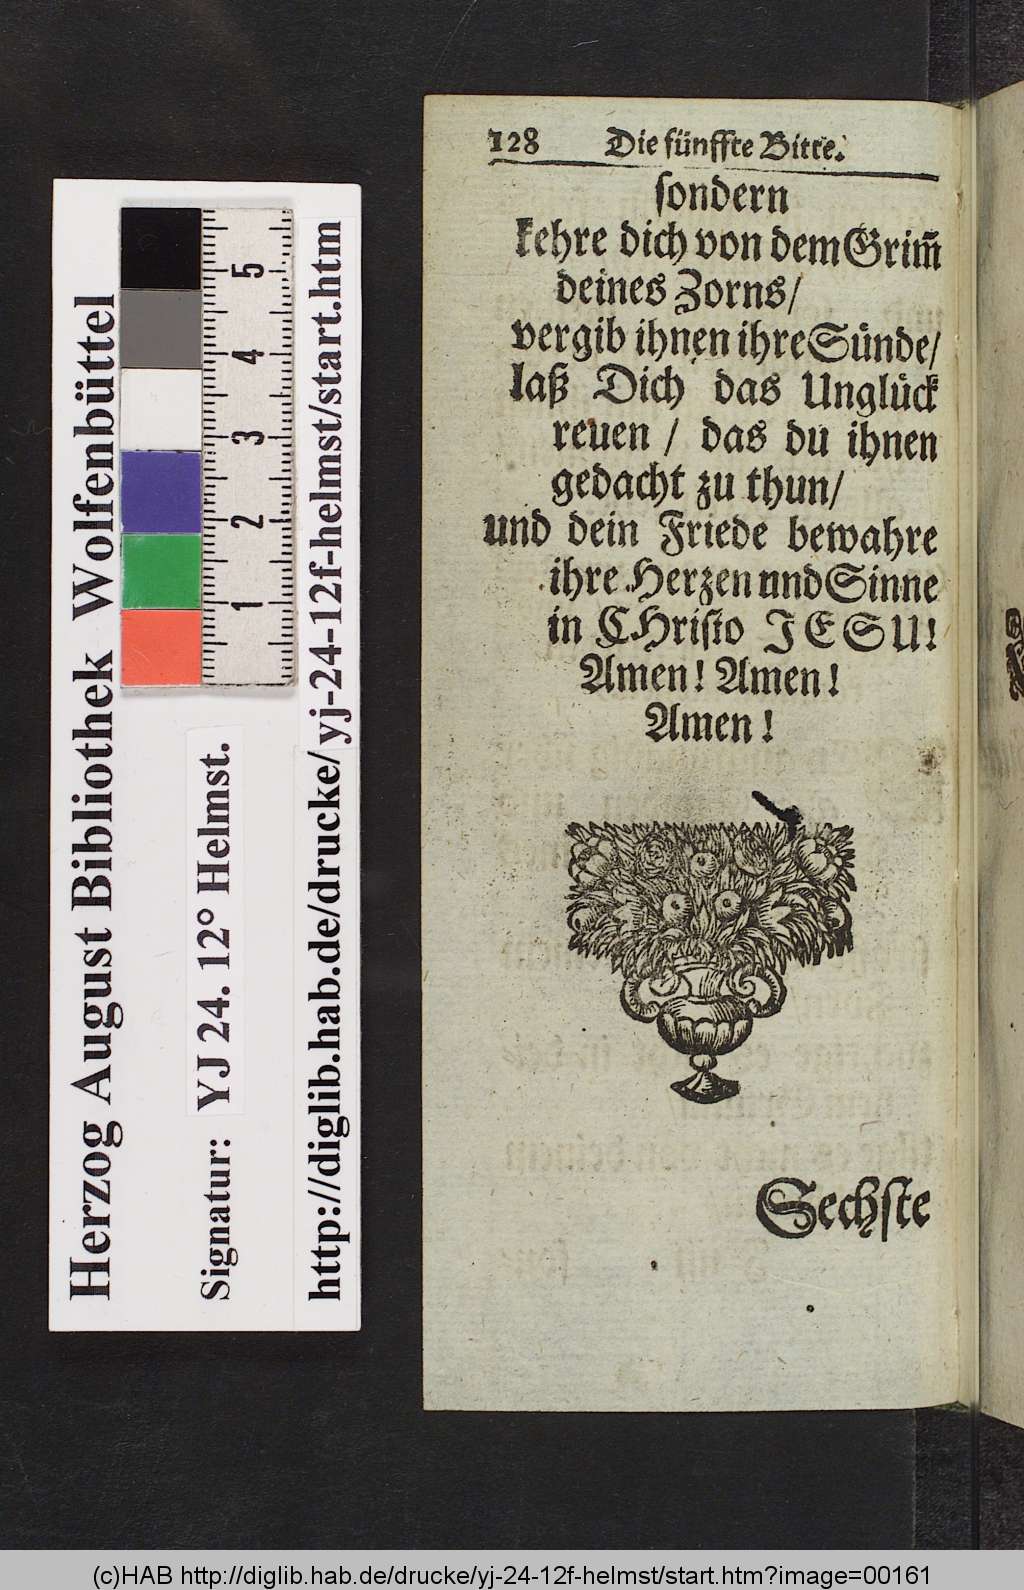 128 Die fünffte Bitte.
sondern
kehre dich von dem Grim̃
deines Zorns/
vergib ihnen ihre Sünde/
laß Dich das Unglück
reuen / das du ihnen
gedacht zu thun/
und dein Friede bewahre
ihre Herzen und Sinne
in CHristo JESU!
Amen! Amen!
Amen!
Sechste
Herzog August Bibliothek Wolfenbüttel
Signatur: YJ 24. 12° Helmst.
http://diglib.hab.de/drucke/yj-24-12f-helmst/start.htm
1 2 3 4 5
(c)HAB http://diglib.hab.de/drucke/yj-24-12f-helmst/start.htm?image=00161